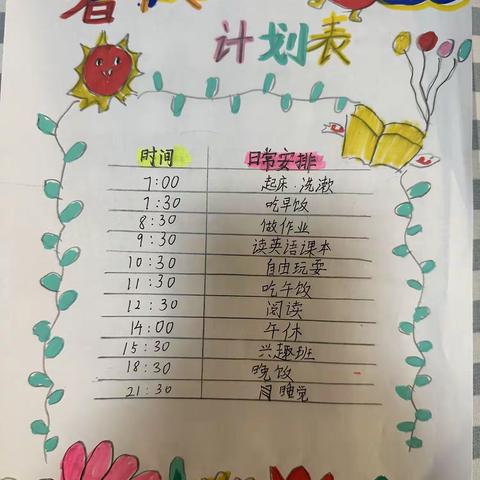 暑假
计划表
时间 日常安排
7:00 起床·洗漱
7:30 吃早饭
8:30 做作业
9:30 读英语课本
10:30 自由玩耍
11:30 吃午饭
12:30 阅读
14:00 午休
15:30 兴趣班
18:30 晚饭
21:30 睡觉